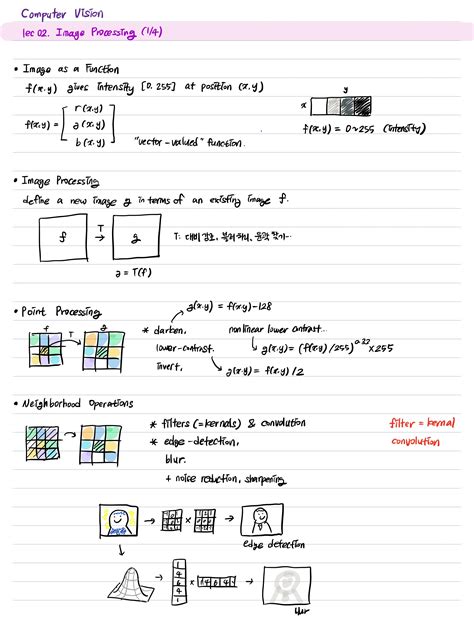 Computer Vision
lec 02. Image Processing (1/4)
• Image as a Function
f(x,y) gives intensity [0, 255] at position (x,y)
f(x,y) = [ r(x,y)
g(x,y)
b(x,y) ]
"vector-valued" function.
y
x
f(x,y) = 0~255 (intensity)
• Image Processing
define a new image g in terms of an existing image f.
f T g
T: 대비 강조, 블러 처리, 윤곽 찾기...
g = T(f)
• Point Processing
f T g
g(x,y) = f(x,y)-128
* darken, nonlinear lower contrast...
lower-contrast. g(x,y) = (f(x,y) /255)^0.33 ×255
invert, g(x,y) = f(x,y) /2
• Neighborhood Operations
* filters (=kernals) & convolution
* edge-detection,
blur.
+ noise reduction, sharpening
filter = kernal
convolution
edge detection
1
4
6
4
1
×
1 4 6 4 1
blur